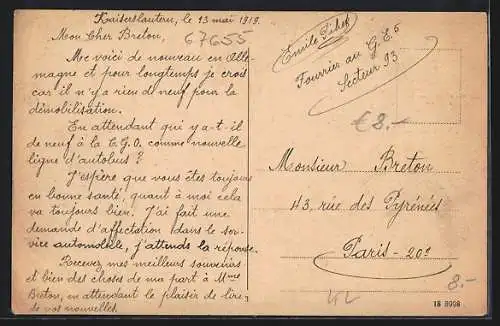 Kaiserslautern, le 13 mai 1919.
67655
Mon Cher Breton,
Me voici de nouveau en Alle-
magne et pour longtemps je crois
car il n'y a rien de neuf pour la
démobilisation.
En attendant qui y a-t-il
de neuf à la C.G.O. comme nouvelle
ligne d'autobus ?
J'espère que vous êtes toujours
en bonne santé, quant à moi cela
va toujours bien. J'ai fait une
demande d'affectation dans le ser-
vice automobile, j'attends la réponse.
Recevez mes meilleurs souvenirs
et bien des choses de ma part à Mme
Breton, en attendant le plaisir de lire
de vos nouvelles.
Emile
Fourrier au G.E 6
Secteur 93
€8.-
Monsieur Breton
43, rue des Pyrénées
Paris - 20e
8.-
18 8998